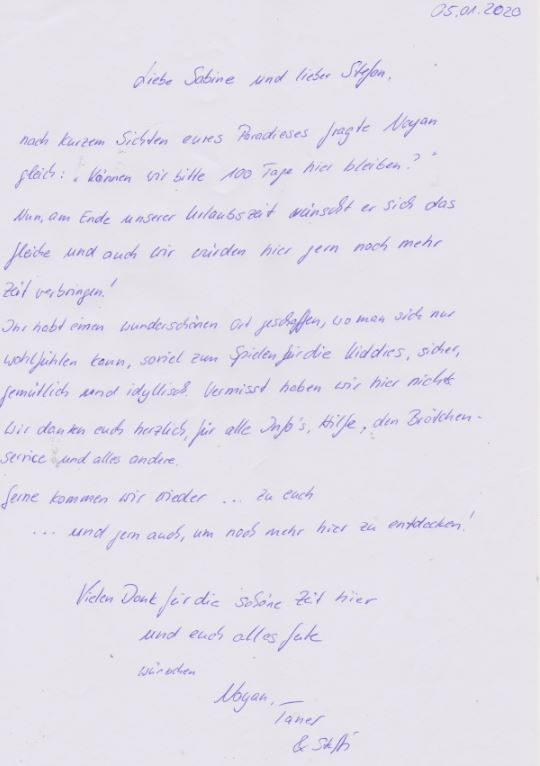 05.01.2020
Liebe Sabine und lieber Stefan,
nach kurzem Sichten eures Paradieses fragte Noyan
gleich: „Können wir bitte 100 Tage hier bleiben?"
Nun, am Ende unserer Urlaubszeit wünscht er sich das
gleiche und auch wir würden hier gern noch mehr
Zeit verbringen!
Ihr habt einen wunderschönen Ort geschaffen, wo man sich nur
wohlfühlen kann, soviel zum Spielen für die Kiddies, sicher,
gemütlich und idyllisch. Vermisst haben wir hier nichts.
Wir danken euch herzlich, für alle Info's, Hilfe, den Brötchen-
service und alles andere.
Gerne kommen wir wieder ... zu euch
... und gern auch, um noch mehr hier zu entdecken!
Vielen Dank für die schöne Zeit hier
und euch alles Gute
wünschen
Noyan,
Taner
& Steffi